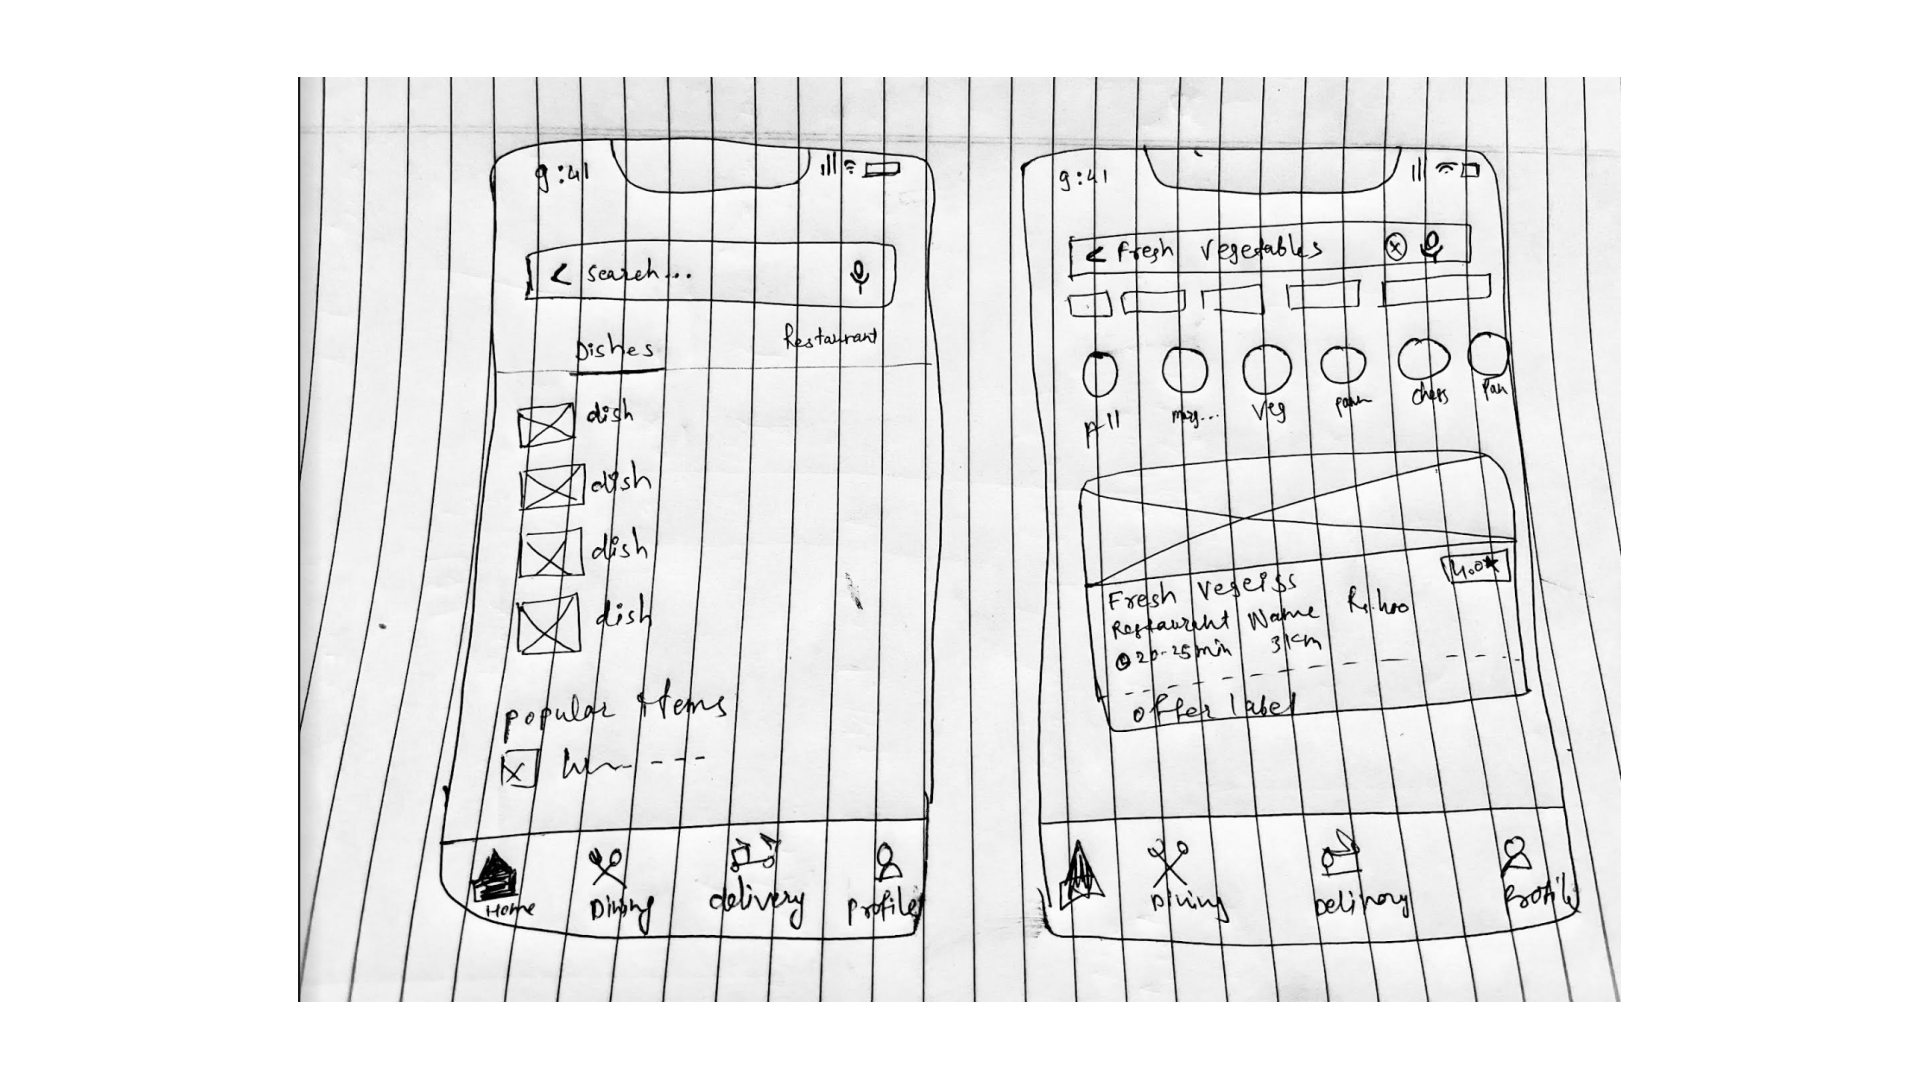 9:41
< search...
Dishes Restaurant
dish
dish
dish
dish
popular Items
Home Dining delivery profile
9:41
< Fresh Vegetables
All marg... Veg chees Pan
4.0★
Fresh
Restaurant Name Rs.
20-25 min 3 km
offer label
Dining Delivery Profile